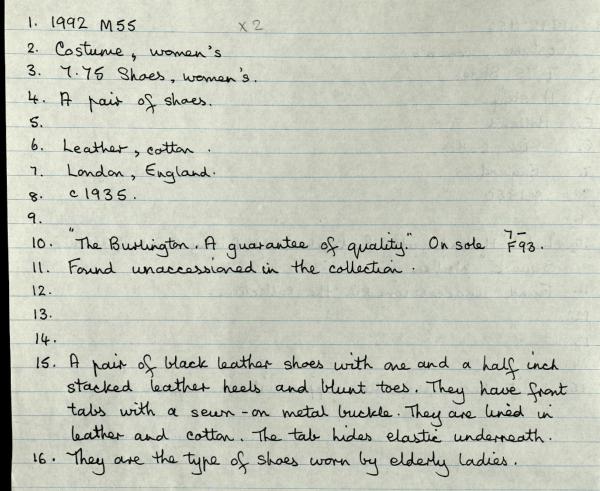 1. 1992 M55 x2
2. Costume, women's
3. 7.75 Shoes, women's.
4. A pair of shoes.
5.
6. Leather, cotton.
7. London, England.
8. c1935.
9.
10. "The Burlington. A guarantee of quality." On sole 7– F93.
11. Found unaccessioned in the collection.
12.
13.
14.
15. A pair of black leather shoes with one and a half inch
stacked leather heels and blunt toes. They have front
tabs with a sewn-on metal buckle. They are lined in
leather and cotton. The tab hides elastic underneath.
16. They are the type of shoes worn by elderly ladies.